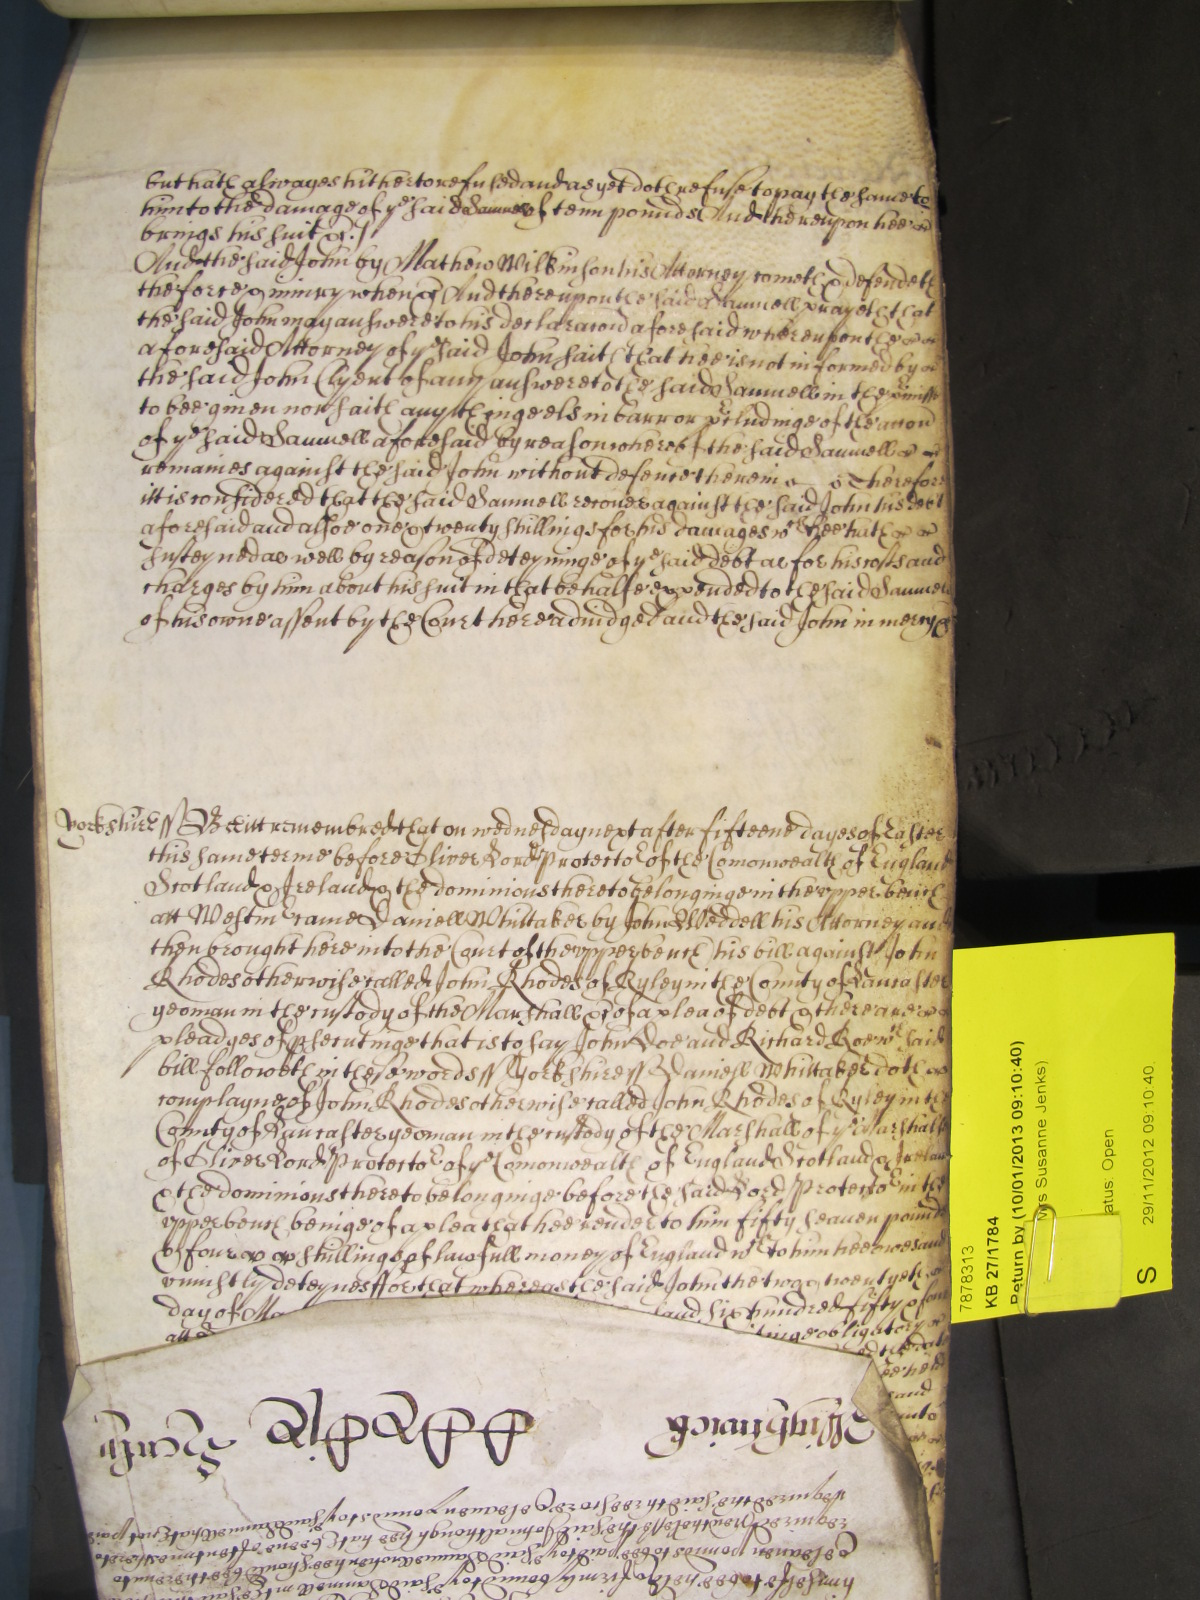 but hath alwayes hitherto refused and as yet doth refuse to pay the same to
him to the damage of ye said Samuell of tenn pounds And thereupon hee
brings his suit &c.
And the said John by Mathew Wilkinson his Attorney cometh & defendeth
the force & iniury when &c And thereupon the said Samuell prayeth that
the said John may answere to his declaracion aforesaid whereupon the
aforesaid Attorney of ye said John saith that hee is not informed by
the said John Clyent of any answere to the said Samuell in the
to bee given nor saith any thinge els in barr or of the
of ye said Samuell aforesaid by reason whereof the said Samuell
remaines against the said John without defence therein Therefore
itt is considered that the said Samuell recover against the said John his debt
aforesaid and alsoe one & twenty shillings for his damages wch hee hath
susteyned as well by reason of deteyninge of ye said debt as for his costs and
charges by him about his suit in that behalfe expended to the said Samuell
of his owne assent by the Court here adiudged and the said John in mercy &c
Yorkshire ss Bee itt remembred that on wednesday next after fifteene dayes of Easter
this same terme before Oliver Lord Protector of the Comonwealth of England
Scotland & Ireland & the dominions thereto belonginge in the upper bench
att Westmr came Daniell Whittaker by John Weddell his Attorney and
then brought here into the Court of the upper bench his bill against John
Rhodes otherwise called John Rhodes of Ryley in the County of Lancaster
yeoman in the custody of the Marshall &c of a plea of debt & there are
pleadges of psecutinge that is to say John Doe and Richard Roe wch said
bill followeth in these words ss Yorkshire ss Daniell Whittaker doth
complayne of John Rhodes otherwise called John Rhodes of Ryley in the
County of Lancaster yeoman in the custody of the Marshall of ye Marshalsey
of Oliver Lord Protector of ye Comonwealth of England Scotland & Ireland
& the dominions thereto belonginge before the said Lord Protector in the
upper bench beinge of a plea that hee render to him fifty seaven pounds
& four shillings of lawfull money of England wch to him hee owes and
uniustly deteynes ffor that whereas the said John the two & twentyeth
day of sand six hundred fifty & four
inge obligatory
7878313
KB 27/1784
Return by (10/01/2013 09:10:40)
Mrs Susanne Jenks)
atus: Open
S
29/11/2012 09:10:40
Wightwick
required the said threescore & seaven pounds to ye said Samuell hath not paid
required Neverthelesse the said John although hee hath beene often times thereto
seaven pounds to bee paid to ye said Samuell when hee should bee thereunto
himselfe to bee held & firmly bound to ye said Samuell in the said